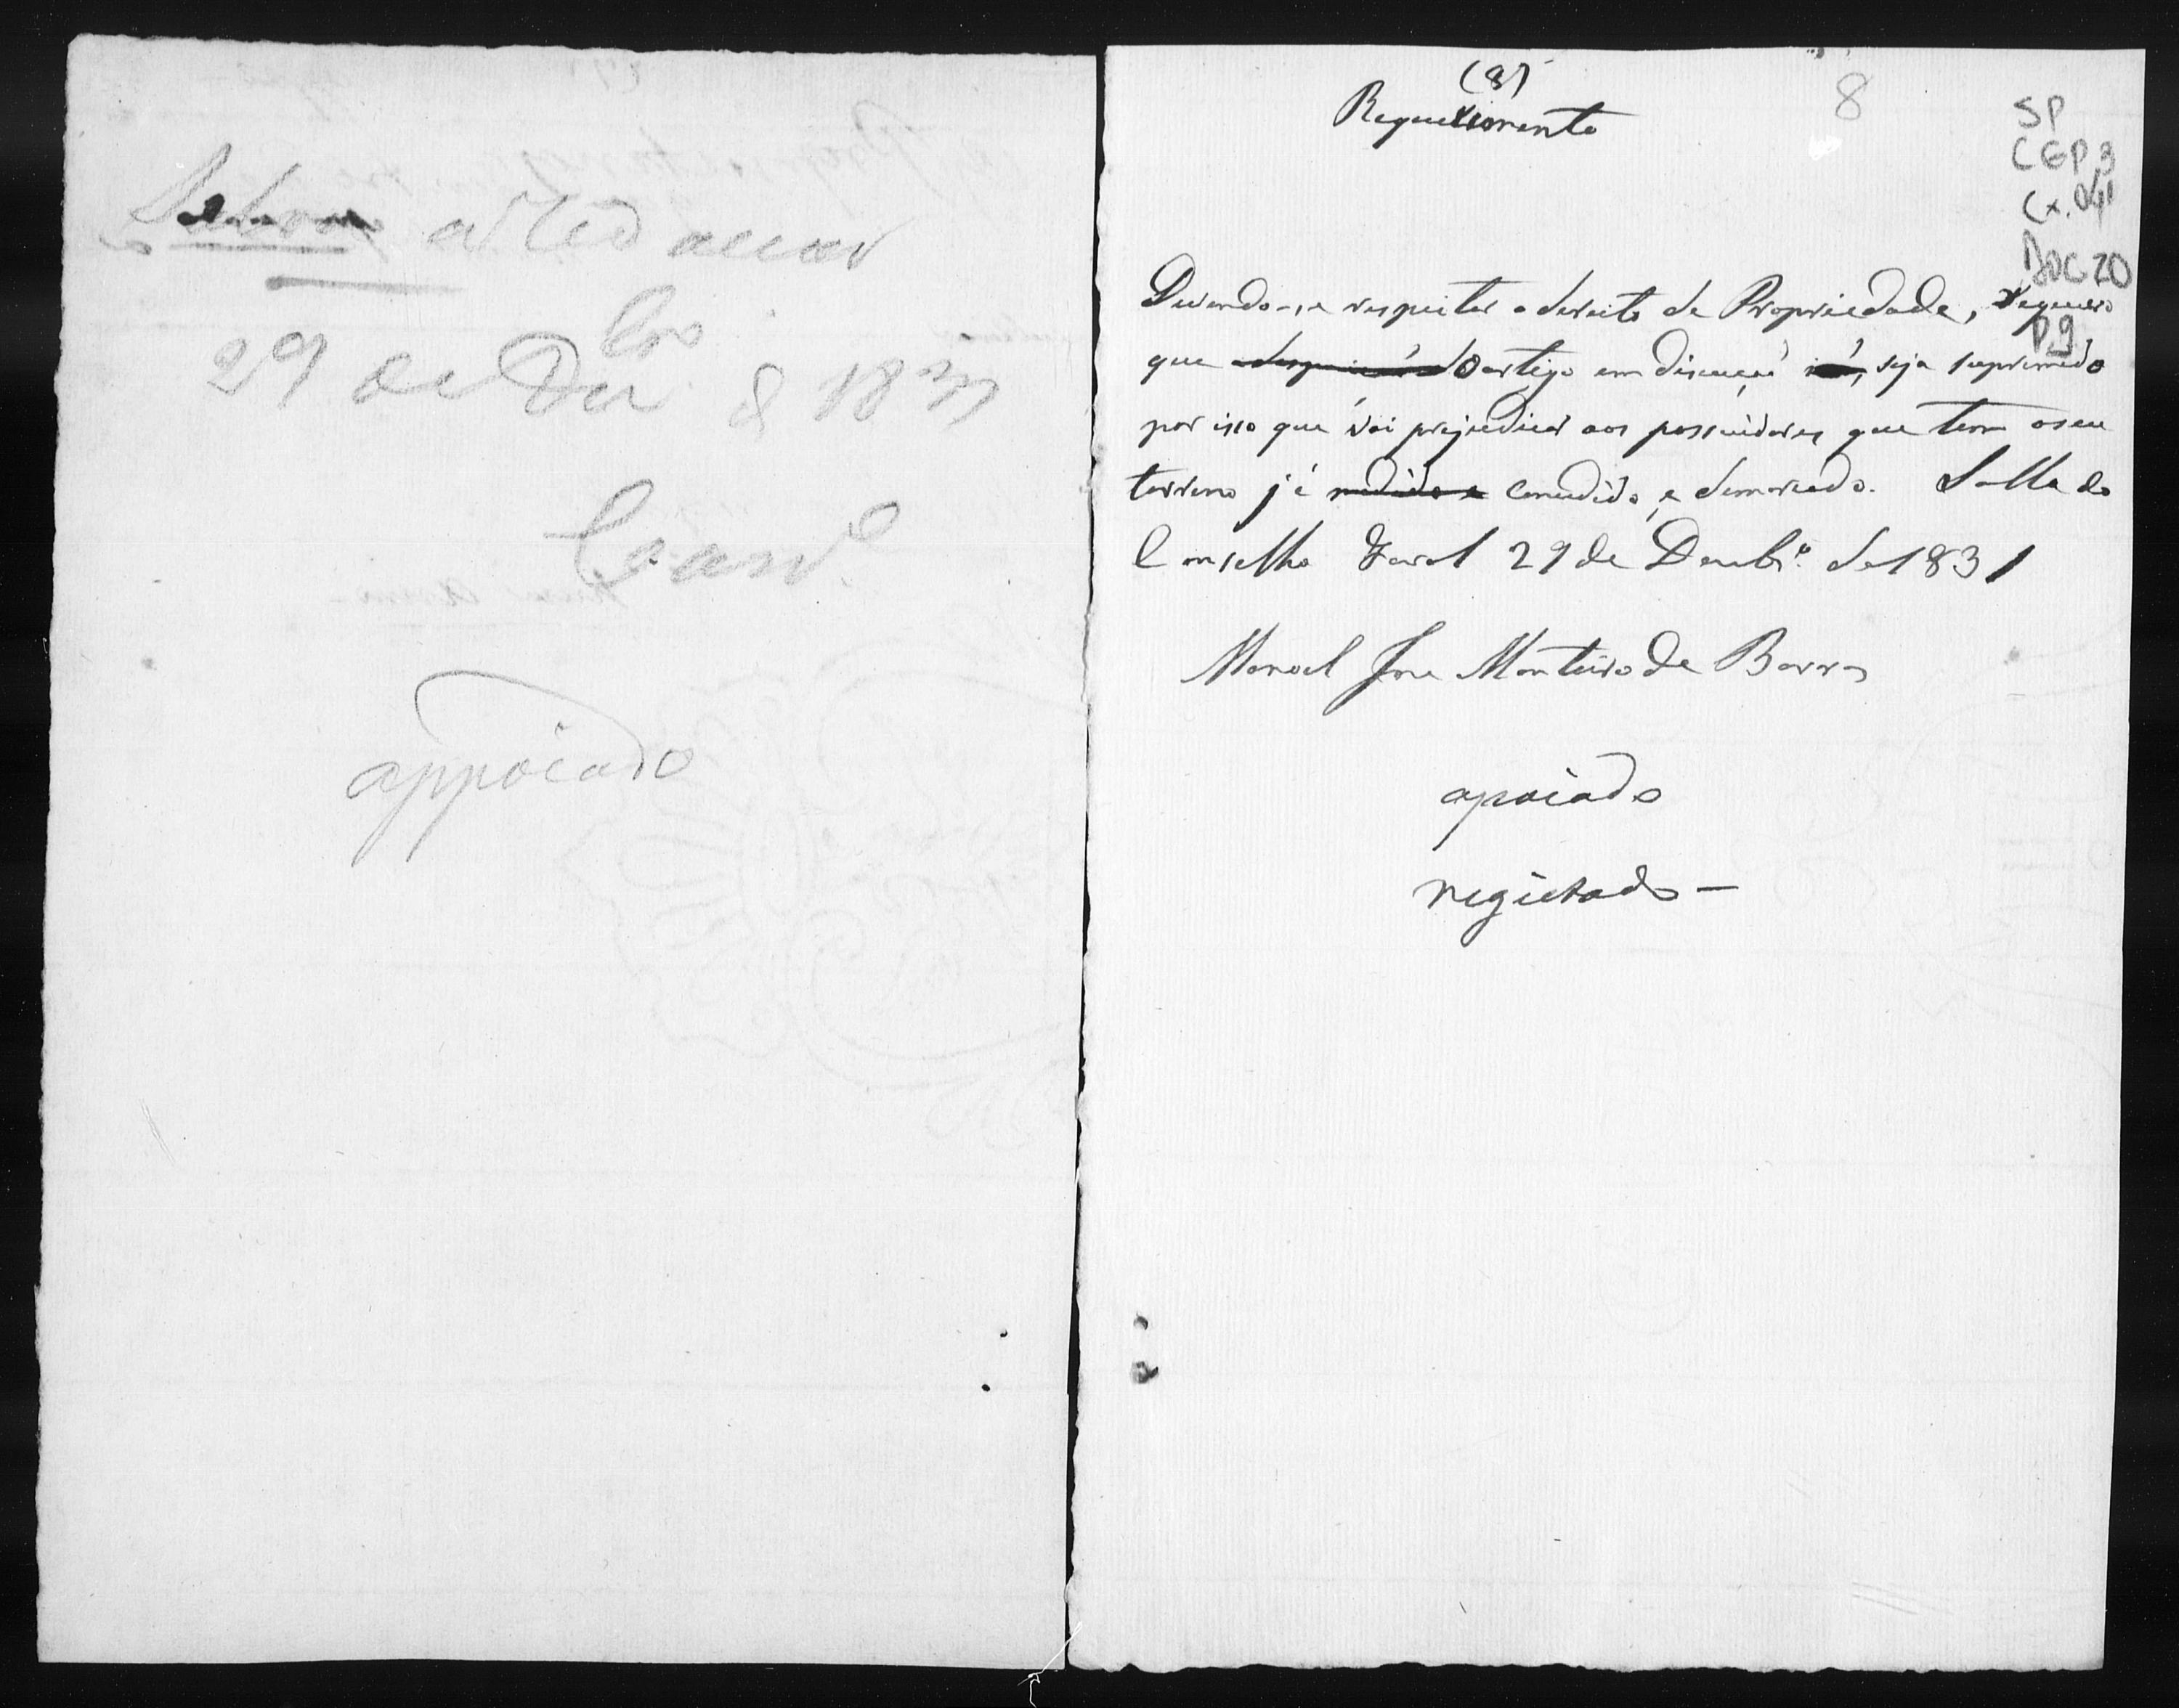 Salva a redacção
29 de Dezbro d 1831
appoiado
(8)
Requerimento
8
SP
CGP 3
Cx. 041
DOC 20
P.9
Devendo-se respeitar o direito de Propriedade, requeiro
que o artigo em discução seja supremido
por isso que vai prejudicar aos possuidores que tem o seu
terreno já medido e concedido, e demarcado. Salla do
Conselho Geral 29 de Dezbrº de 1831
Manoel Jose Monteiro de Barros
apoiado
regeitado —